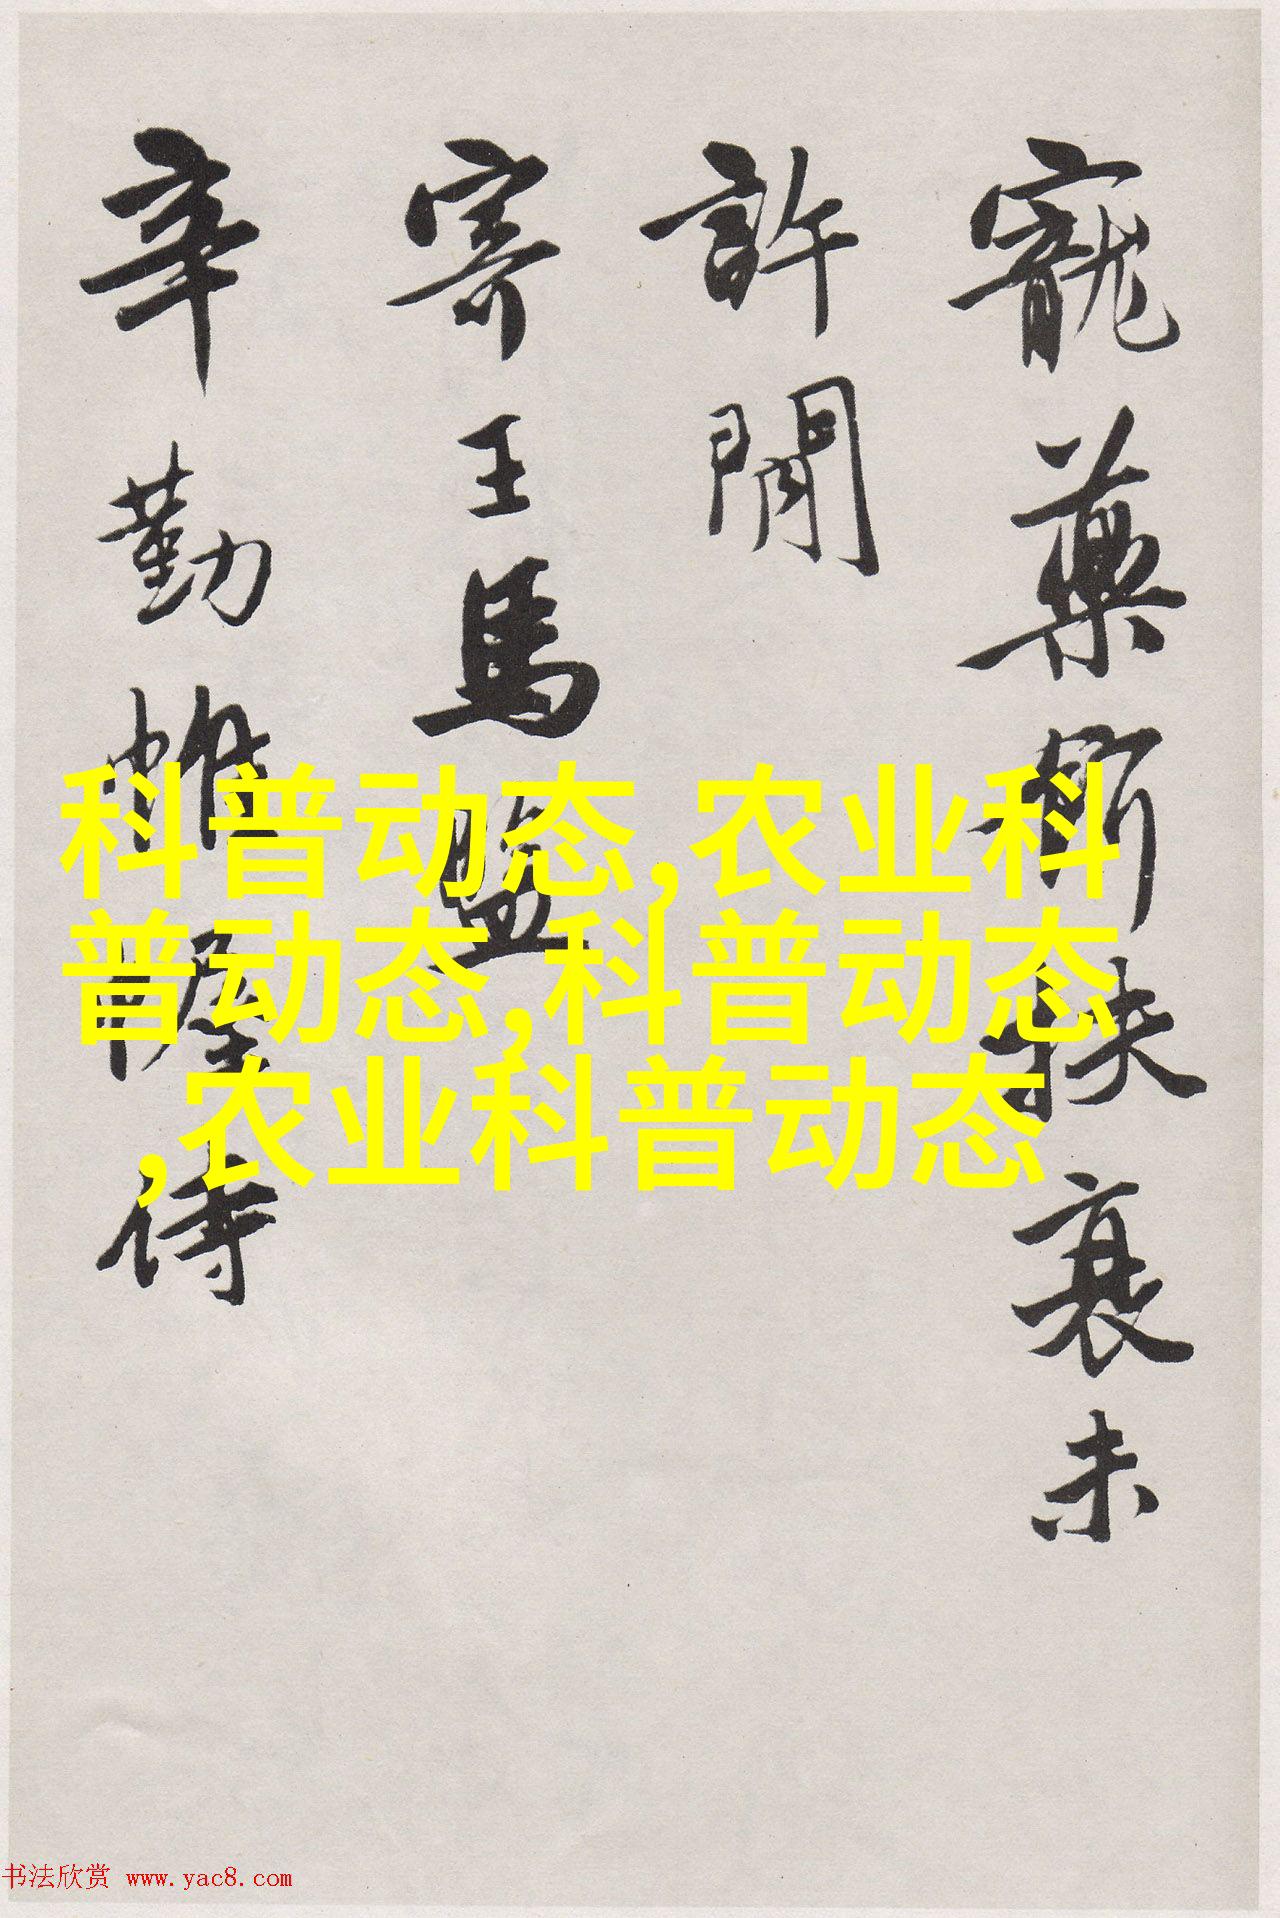 寵藥斫扶衰未
許閒
寄王馬監
辛勤帷幄侍
科普动态,农业科
普动态,科普动态
,农业科普动态
书法欣赏 www.yac8.com